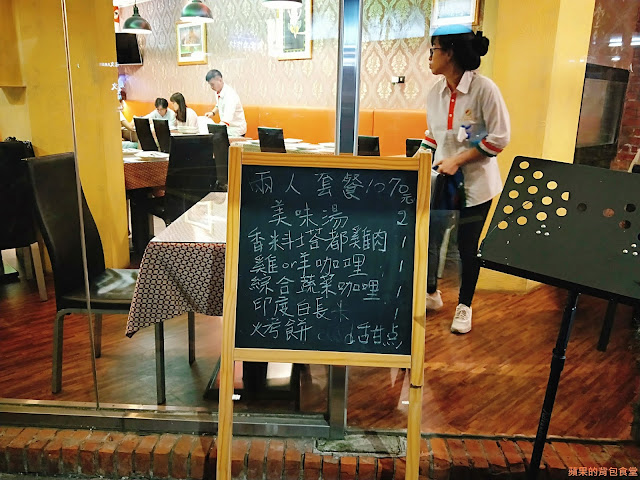 兩人套餐1070元
美味湯 2
香料塔都雞肉 1
雞or羊咖哩 1
綜合蔬菜咖哩 1
印度白長米 1
烤餅 甜点
蘋果的背包食堂